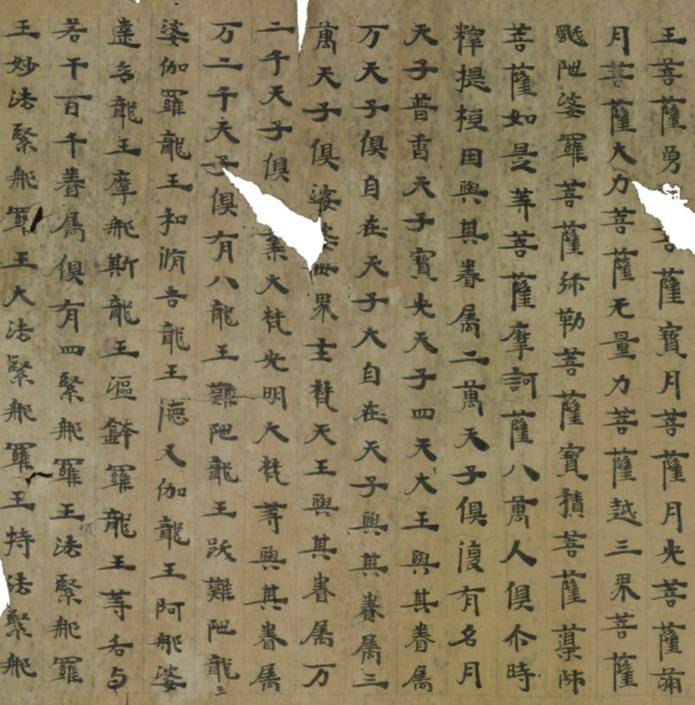 王菩薩勇施菩薩寶月菩薩月光菩薩滿
月菩薩大力菩薩无量力菩薩越三界菩薩
颰陁婆羅菩薩弥勒菩薩寶積菩薩導師
菩薩如是等菩薩摩訶薩八萬人俱尒時
釋提桓因與其眷属二萬天子俱復有名月
天子普香天子寳光天子四天大王與其眷属
万天子俱自在天子大自在天子與其眷属三
萬天子俱娑婆世界主梵天王與其眷属万
二千天子俱 棄大梵光明大梵等與其眷属
万二千天子俱有八龍王難陁龍王跋難陁龍
娑伽羅龍王和脩吉龍王德叉伽龍王阿那婆
達多龍王摩那斯龍王漚鉢羅龍王等各与
若干百千眷属俱有四緊那羅王法緊那羅
王妙法緊那羅王大法緊那羅王持法緊那